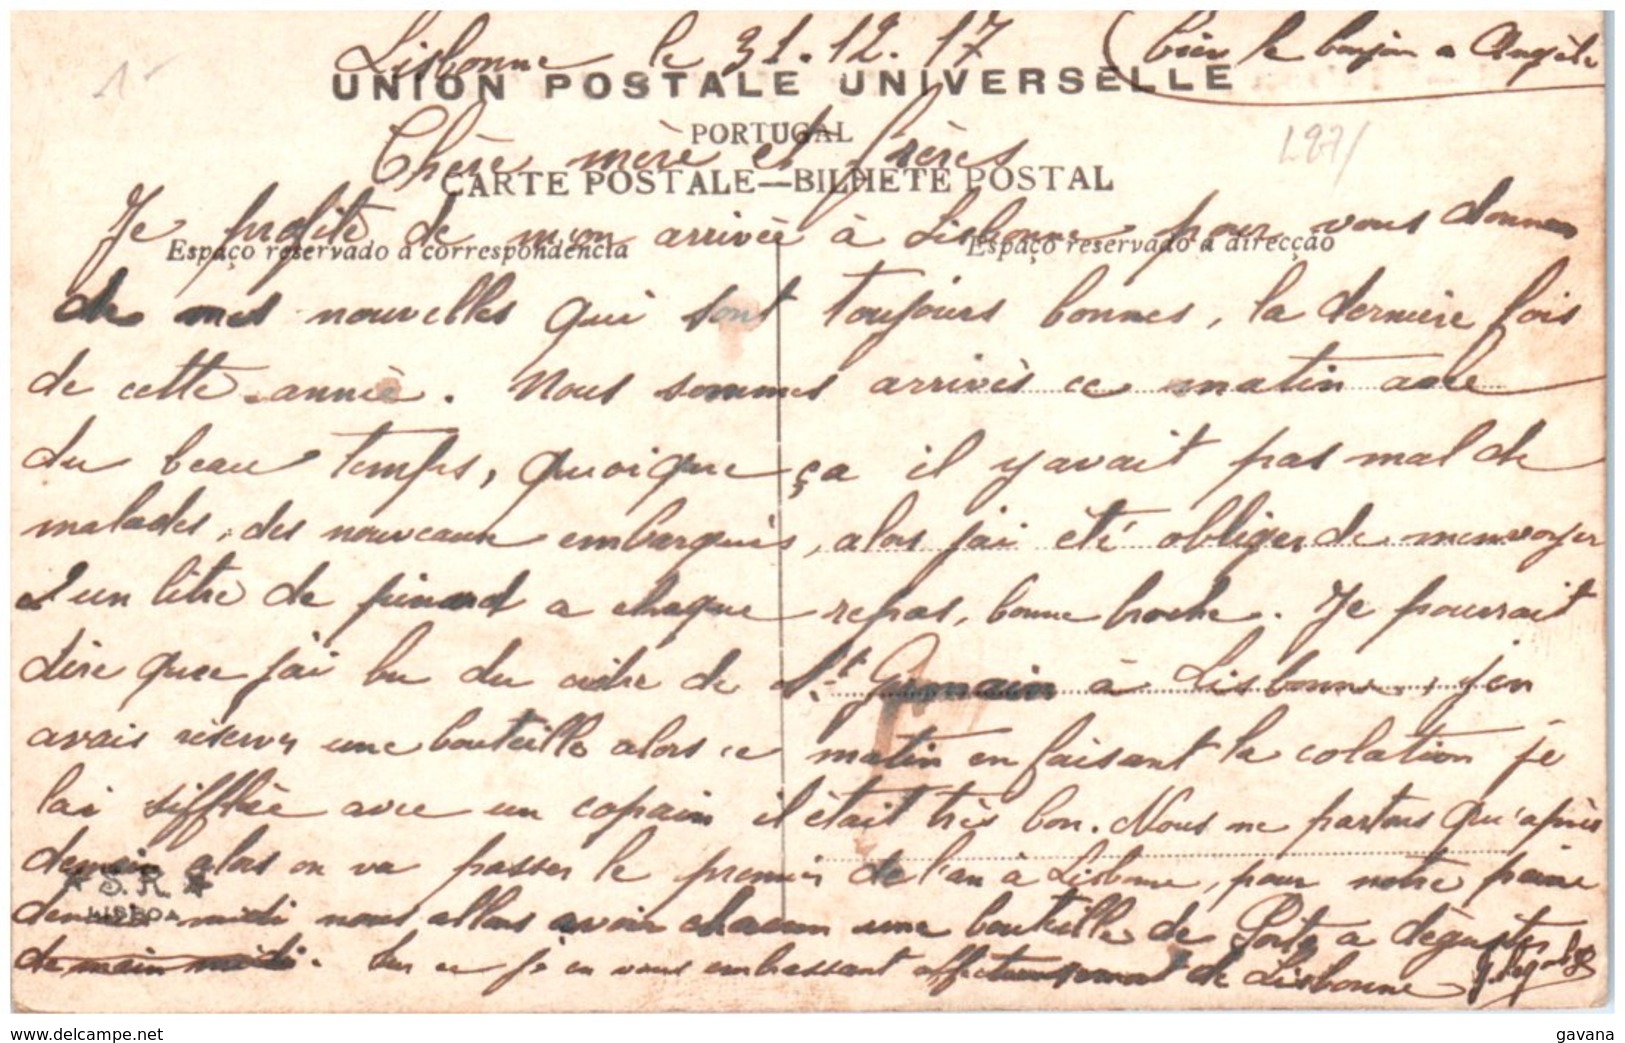 Lisbonne le 31.12.17 (bien le bonjour a Angèle
UNION POSTALE UNIVERSELLE
PORTUGAL
Chère mère et frères
CARTE POSTALE—BILHETE POSTAL
Je profite de mon arrivée à Lisbonne pour vous donner
Espaço reservado á correspondencia Espaço reservado á direcção
de mes nouvelles qui sont toujours bonnes, la dernière fois
de cette année. Nous sommes arrivés ce matin avec
du beau temps, quoique ça il y avait pas mal de
malades, des nouveaux embarqués, alors jai été obliger de menvoyer
un litre de pinard a chaque repas, bonne broche. Je pourrait
dire que jai bu du cidre de St Germain à Lisbonne, j'en
avais réservé une bouteille alors ce matin en faisant la colation je
lai sifflée avec un copain il était très bon. Nous ne partons qu'après
demain alors on va passer le premier de l'an à Lisbonne, pour notre peine
* S.R. *
LISBOA
demain midi nous allons avoir chacun une bouteille de Porto a déguster
demain midi. Sur ce je en vous embrassant affectueusement de Lisbonne
L27/
gavana
https://www.delcampe.net